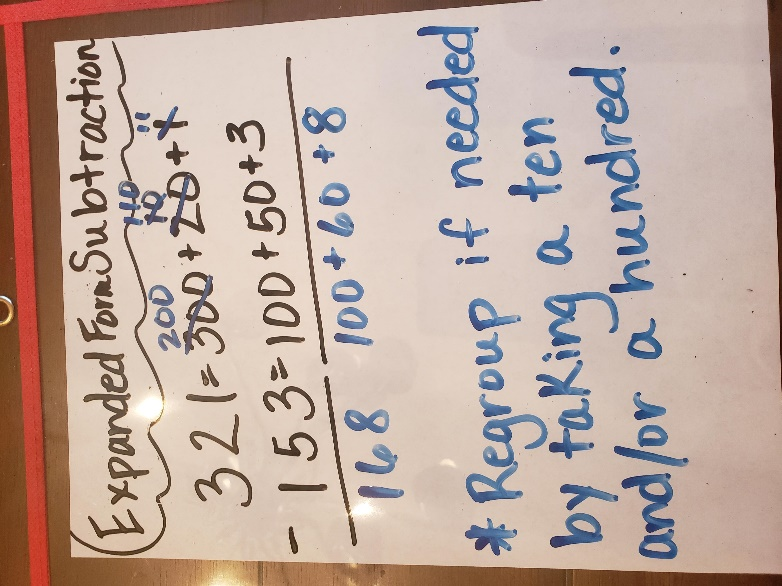 Expanded Form Subtraction
200 110 10 11
321=300+20+1
-153=100+50+3
168 100+60+8
*Regroup if needed
by taking a ten
and/or a hundred.